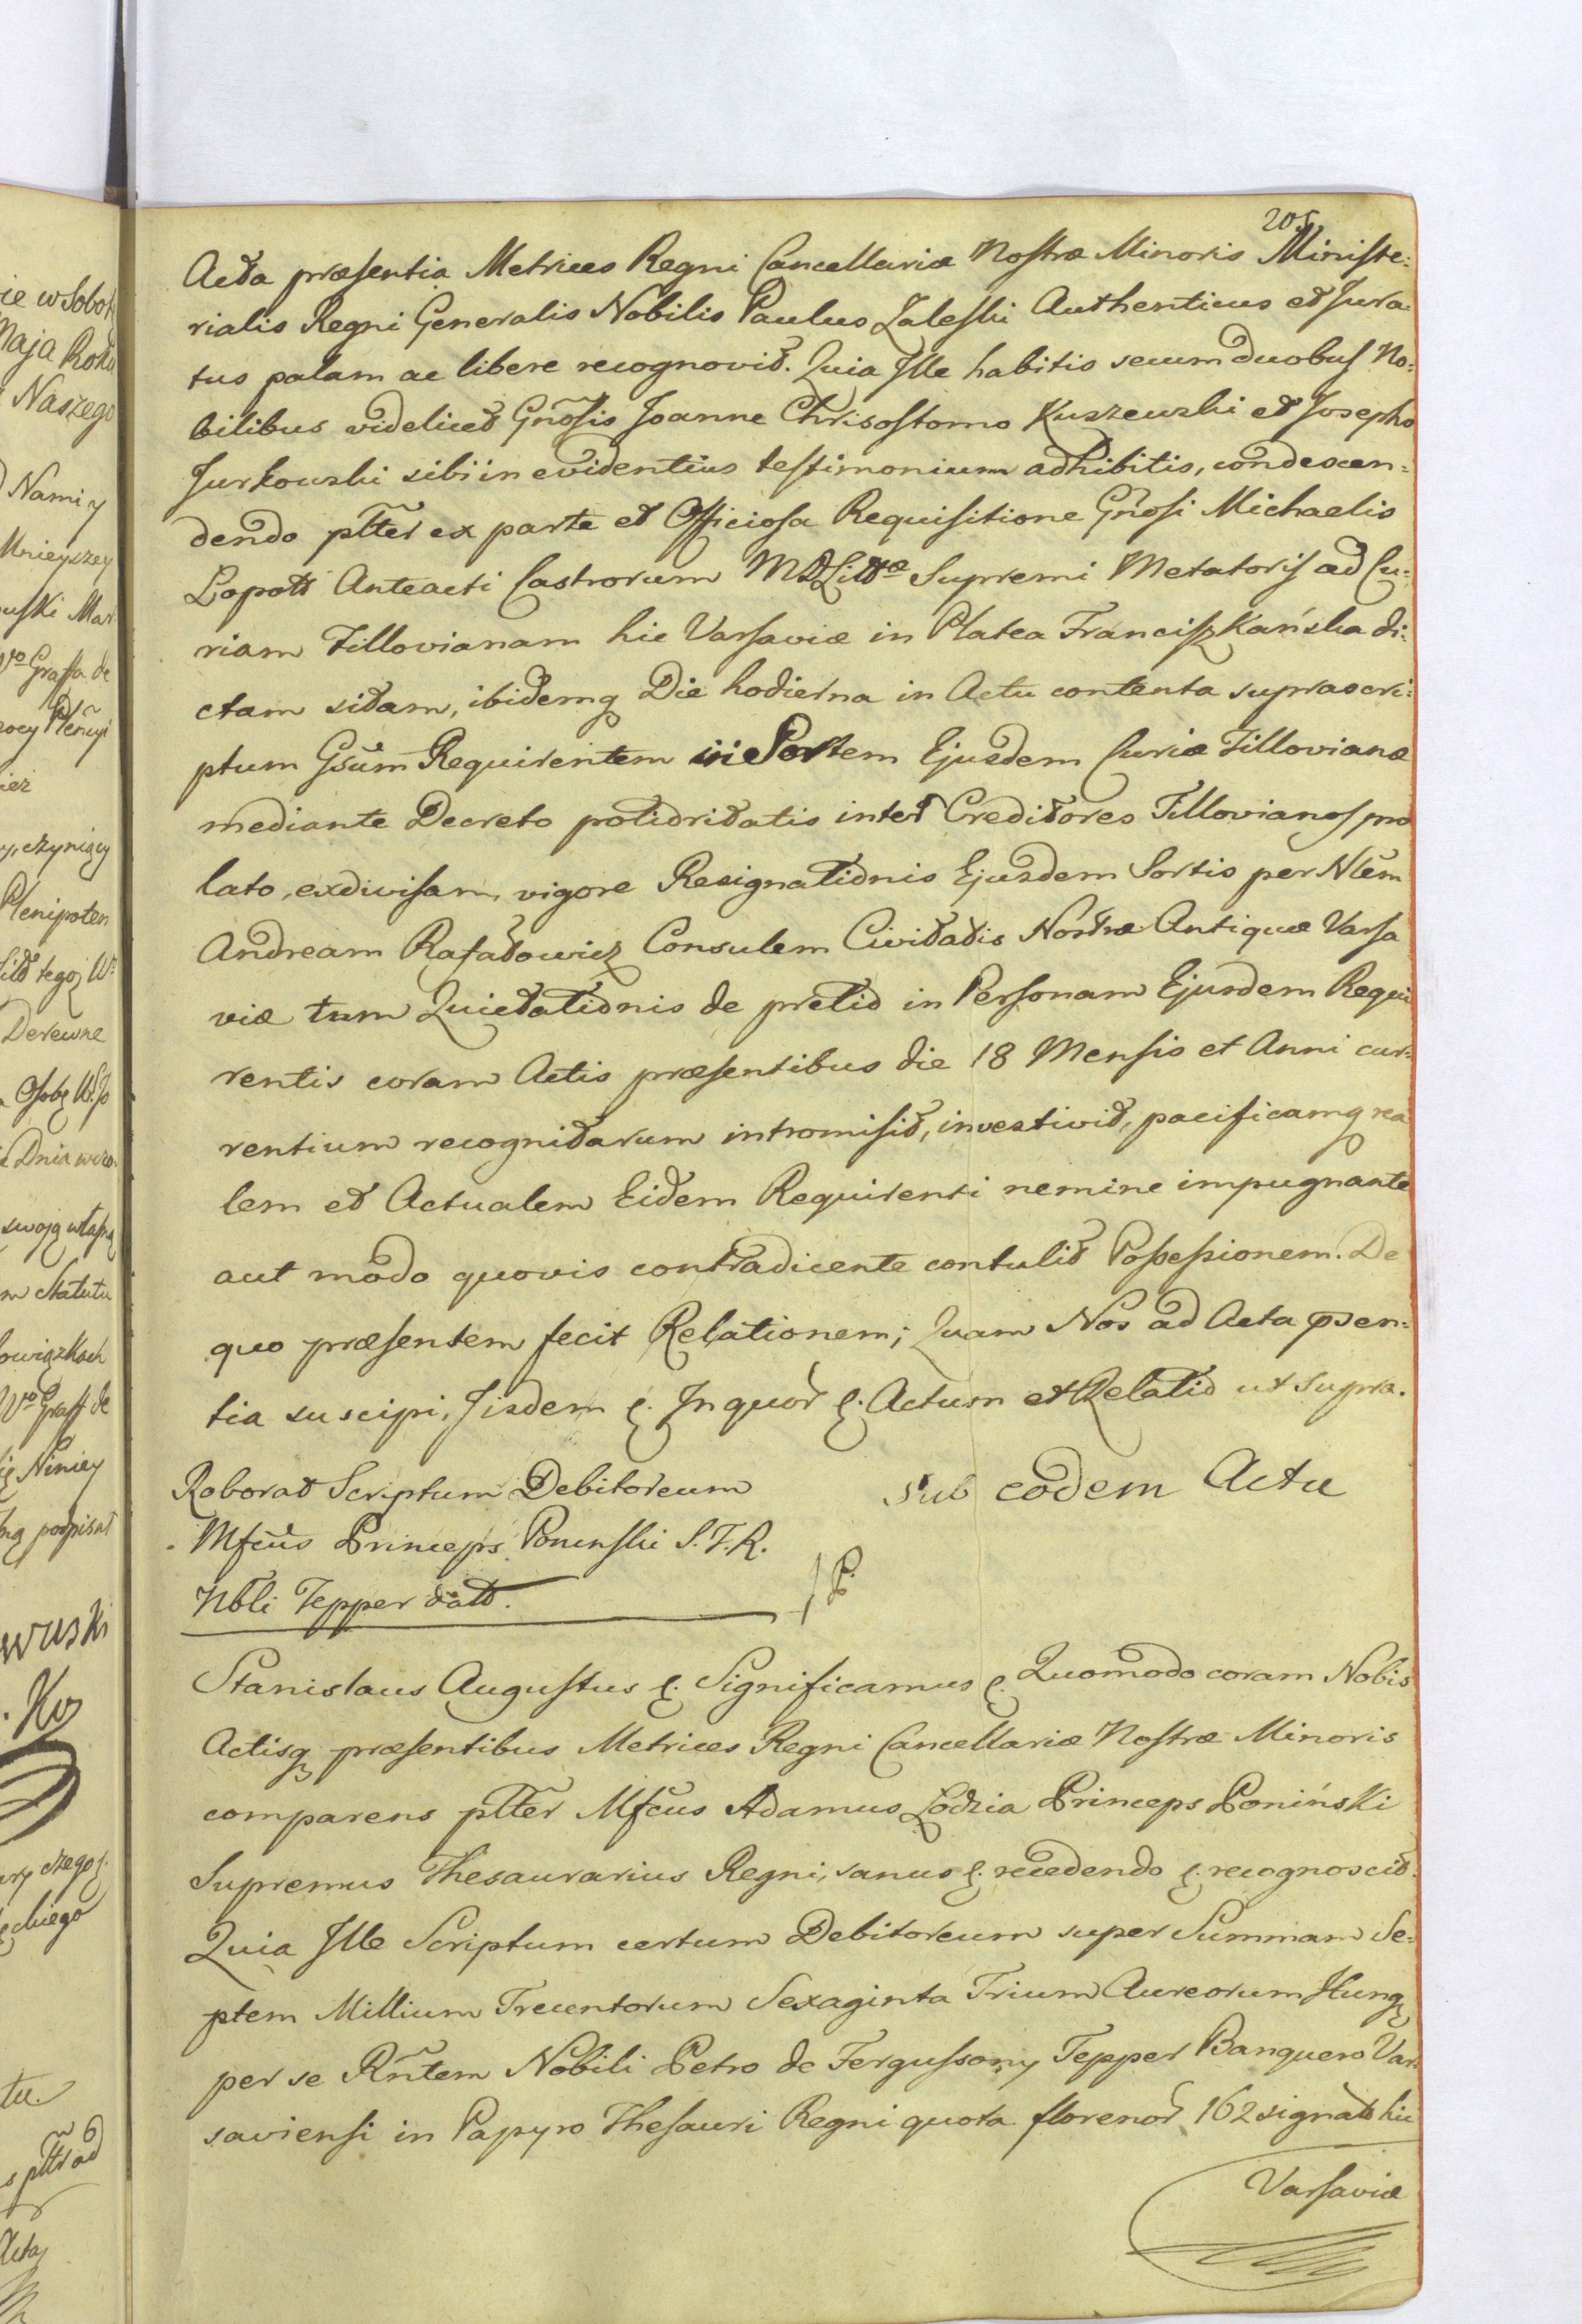 205
Acta præsentia Metrices Regni Cancellariæ Nostræ Minoris Ministe:
rialis Regni Generalis Nobilis Paulus Zaleski Authenticus et Jura
tus palam ac libere recognovit. Quia Ille habitis secum duobus No:
bilibus videlicet Gnosis Joanne Chrisostomo Kuszewski et Josepho
Jurkowski sibi in evidentius testimonium adhibitis, condescen:
dendo plter ex parte et Officiosa Requisitione Gnosi Michaelis
Lopott Anteacti Castrorum MDLittæ Supremi Metatoris ad Cu:
riam Tillovianam hic Varsaviæ in Platea Franciszkańska di:
ctam sitam, ibidemq Die hodierna in Actu contenta suprascri:
ptum Gsum Requirentem in Sortem Ejusdem Curiæ Tillovianæ
mediante Decreto potioritatis inter Creditores Tillovianos pro
lato, exdivisam, vigore Resignationis Ejusdem Sortis per Nlem
Andream Rafałowicz Consulem Civitatis Nostræ Antiquæ Varsa
viæ tum Quietationis de pretio in Personam Ejusdem Requi
rentis coram Actis præsentibus die 18 Mensis et Anni cur:
rentium recognitarum intromisit, investivit, pacificamq rea
lem et Actualem Eidem Requirenti nemine impugnante
aut modo quovis contradicente contulit Possessionem. De
quo præsentem fecit Relationem; Quam Nos ad Acta præsen:
tia suscipi, Iisdem &. In quor &. Actum et Relatio ut supra.
Roborat Scriptum Debitoreum
Mfcus Princeps Poninski S.T.R.
Nbli Tepper datt.
Sub eodem Actu
Stanislaus Augustus &. Significamus &. Quomodo coram Nobis
Actisq præsentibus Metrices Regni Cancellariæ Nostræ Minoris
comparens plter Mfcus Adamus Łodzia Princeps Poniński
Supremus Thesaurarius Regni, sanus &. recedendo &. recognoscit.
Quia Ille Scriptum certum Debitoreum super Summam Se:
ptem Millium Trecentorum Sexaginta Trium Aureorum Hung
per se Rntem Nobili Petro de Fergussony Tepper Banquero Var:
saviensi in Papyro Thesauri Regni quota florenor 162 signato hic
Varsaviæ